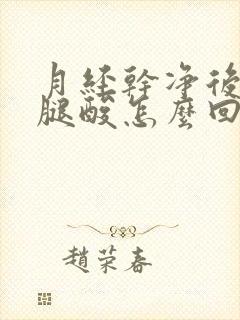 月經幹净後
腿酸怎麼回
趙荣春